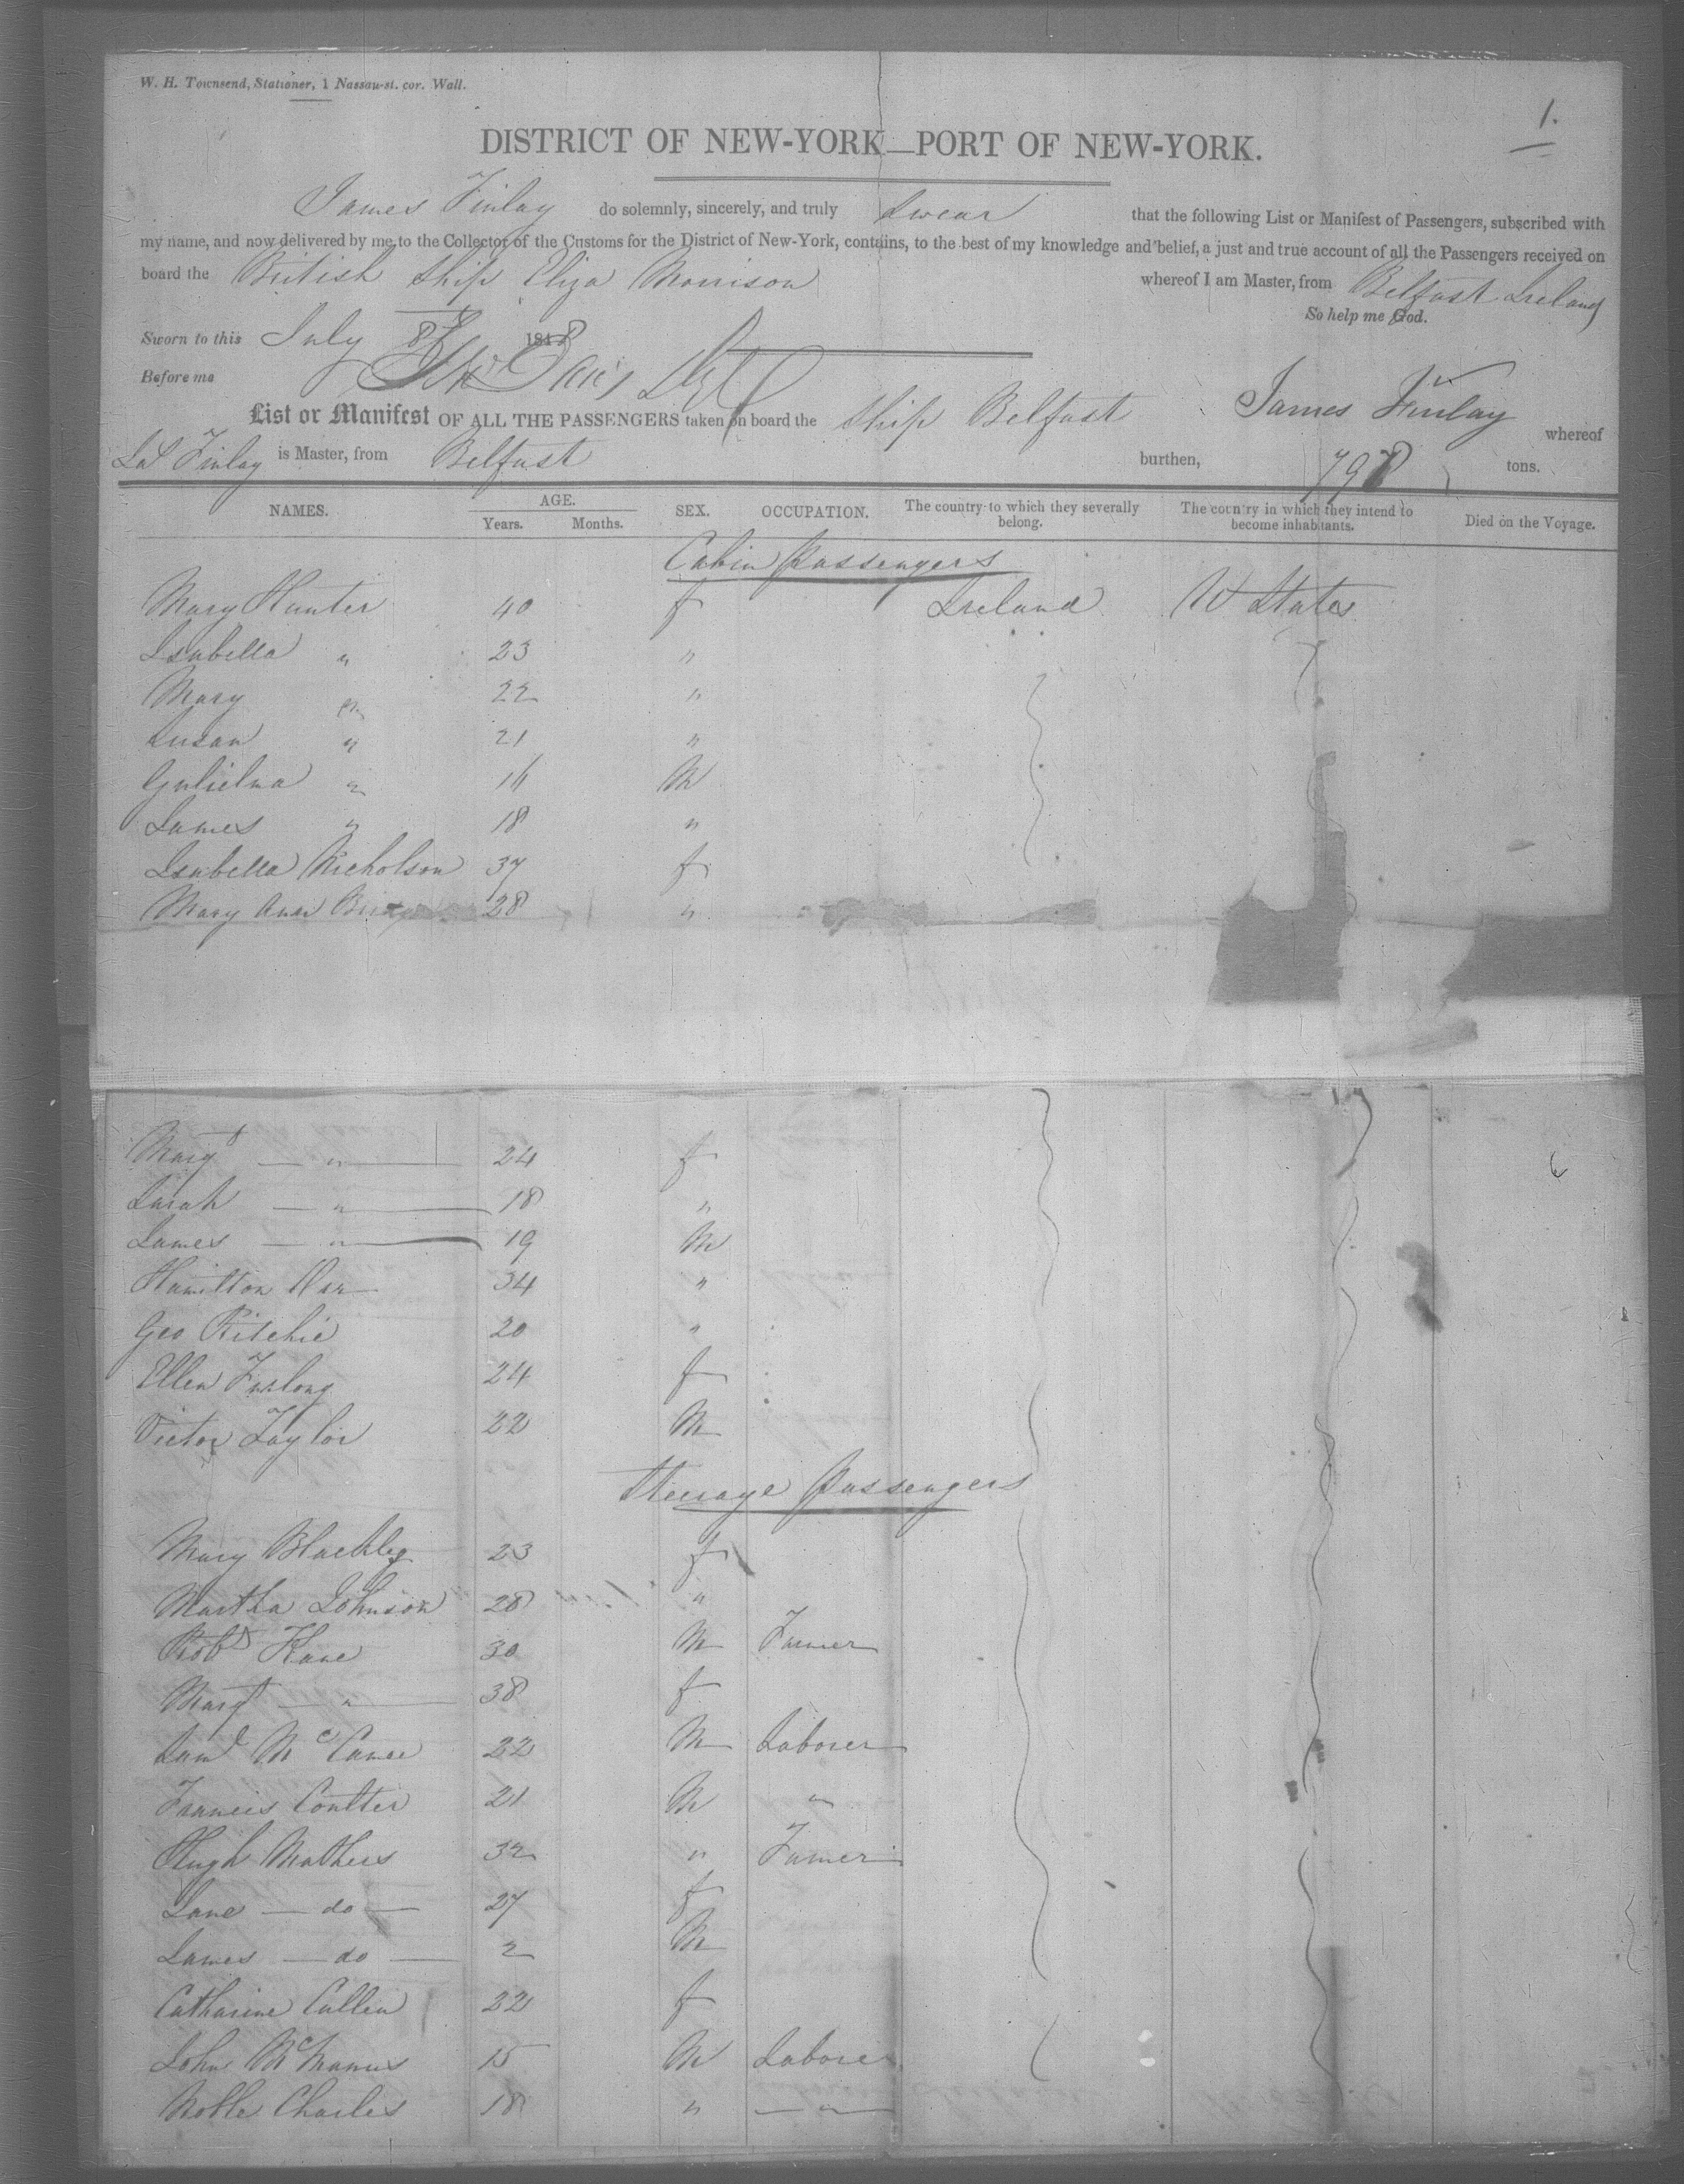 W. H. Townsend, Stationer, 1 Nassau-st. cor. Wall.
1.
DISTRICT OF NEW-YORK—PORT OF NEW-YORK.
James Finlay do solemnly, sincerely, and truly swear that the following List or Manifest of Passengers, subscribed with
my name, and now delivered by me to the Collector of the Customs for the District of New-York, contains, to the best of my knowledge and belief, a just and true account of all the Passengers received on
board the British Ship Eliza Morrison whereof I am Master, from Belfast Ireland
So help me God.
Sworn to this July 8 1848
Before me
James Finlay
List or Manifest OF ALL THE PASSENGERS taken on board the Ship Belfast whereof
Jas Finlay is Master, from Belfast burthen, 798 tons.
NAMES. AGE. SEX. OCCUPATION. The country to which they severally belong. The country in which they intend to become inhabitants. Died on the Voyage.
Years. Months.
Cabin Passengers
Mary Hunter 40 f Ireland U States
Isabella " 23 "
Mary " 22 "
Susan " 21 "
Gulielma " 16 M
James " 18 "
Isabella Nicholson 37 f
Mary Ann 28 "
Margt — " — 24 f
Sarah — " — 18 "
James — " — 19 M
Hamilton Orr 34 "
Geo Ritchie 20 "
Ellen Furlong 24 f
Victor Taylor 22 M
Steerage Passengers
Mary Blackley 23 f
Martha Johnson 28 "
Robt Kane 30 M Farmer
Margt — " — 38 f
Saml McCance 22 M Laborer
Francis Coulter 21 M "
Hugh Mathers 32 " Farmer
Jane — do — 27 f
James — do — 2 M
Catharine Cullen 22 f
John McManus 15 M Laborer
Noble Charles 18 " — " —